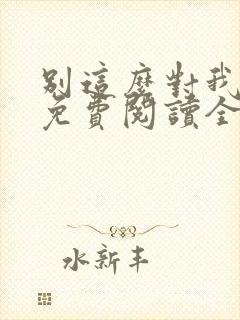 別這麼對我
免費閱讀全
水新丰